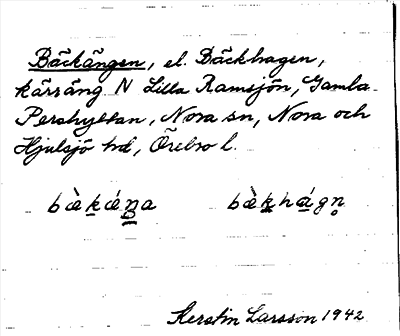 Bäckängen, el. Bäckhagen,
kärräng N Lilla Ramsjön, Gamla
Pershyttan, Nora sn, Nora och
Hjulsjö hd, Örebro l.
bὲkéŋa bὲkhágn̥
Kerstin Larsson 1942